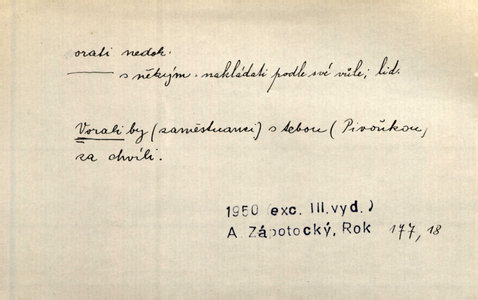 orati nedok.
—— s někým. nakládati podle své vůle; lid.
Vorali by (zaměstnanci) s tebou (Pivoňkou)
za chvíli.
1950 (exc. III.vyd.)
A. Zápotocký, Rok 177, 18